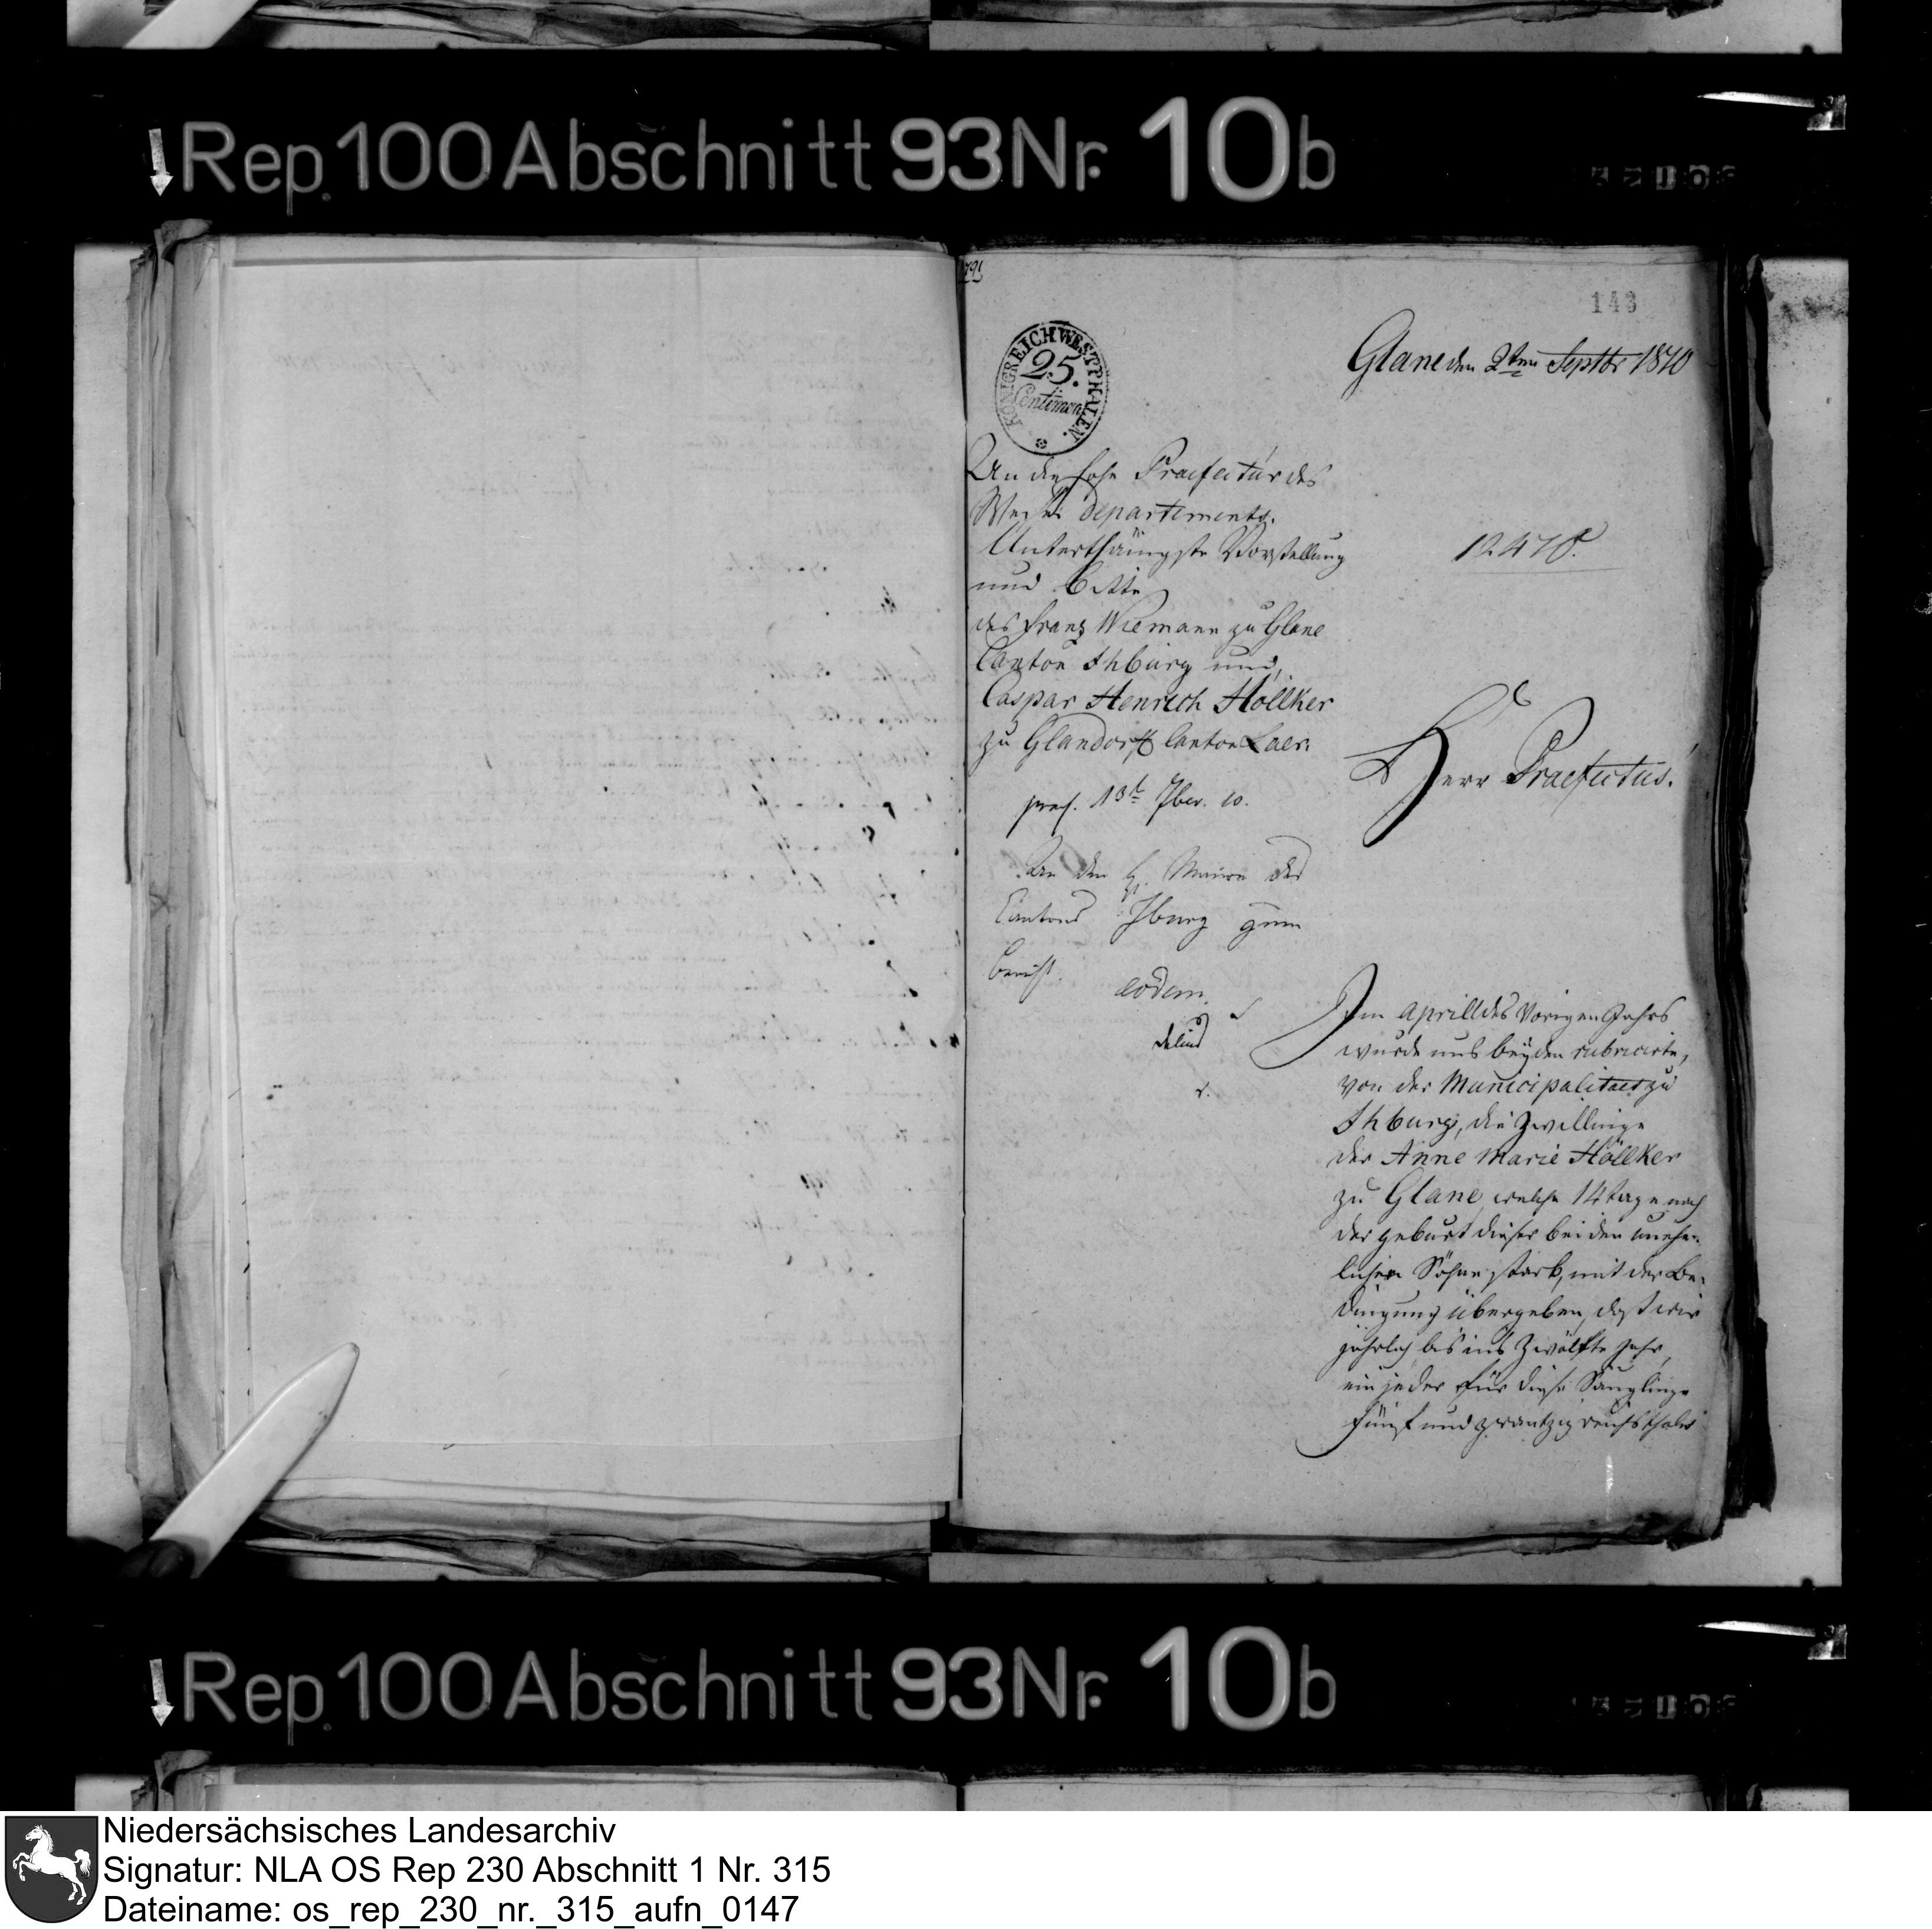 Rep. 100 Abschnitt 93 Nr. 10b
143
KÖNIGREICH WESTPHALEN.
25.
Centimen
Glane den 2ten Septbr 1810
An die hohe Praefectúr des
Weser departements.
Unterthänigste Vorstellung
und bitte
des Franz Wiemann zu Glane
Canton Ihbúrg und,
Caspar Henrich Höllker
zu Glandorff Canton Laer.
12478.
praes. 13t 7ber. 10.
An den H. Maire des
Cantons Iburg zum
Bericht.
eodem.
Delius
Herr Praefectus!
Im aprill des Vorigen Jahrs
wurde uns beyden rubricirte,
von der Municipalitaet zu
Ihburg, die Zwillinge
der Anne Marie Höllker
zu Glane, welche 14 tage nach
der geburt dieser beiden unehe-
lichen Söhne starb, mit der Be-
dingung übergeben, daß wir
jährlich bis ins Zwölfte Jahr,
ein jeder für diese Säuglinge
fünf und zwantzig reichsthaler
Rep. 100 Abschnitt 93 Nr. 10b
Niedersächsisches Landesarchiv
Signatur: NLA OS Rep 230 Abschnitt 1 Nr. 315
Dateiname: os_rep_230_nr._315_aufn_0147